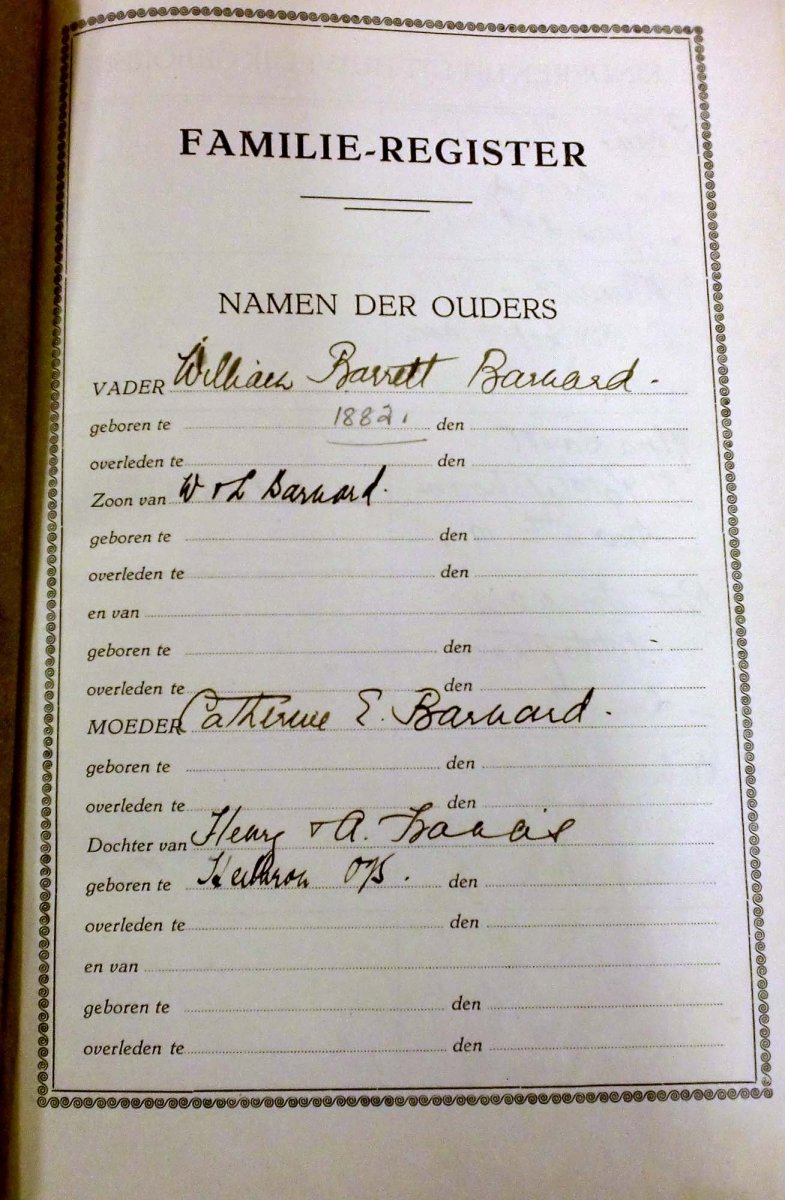 FAMILIE-REGISTER
NAMEN DER OUDERS
VADER William Barrett Barnard.
geboren te 1882. den
overleden te den
Zoon van W & L Barnard.
geboren te den
overleden te den
en van
geboren te den
overleden te den
MOEDER Catherine E. Barnard.
geboren te den
overleden te den
Dochter van Henry & A.
geboren te Heilbron den
overleden te den
en van
geboren te den
overleden te den